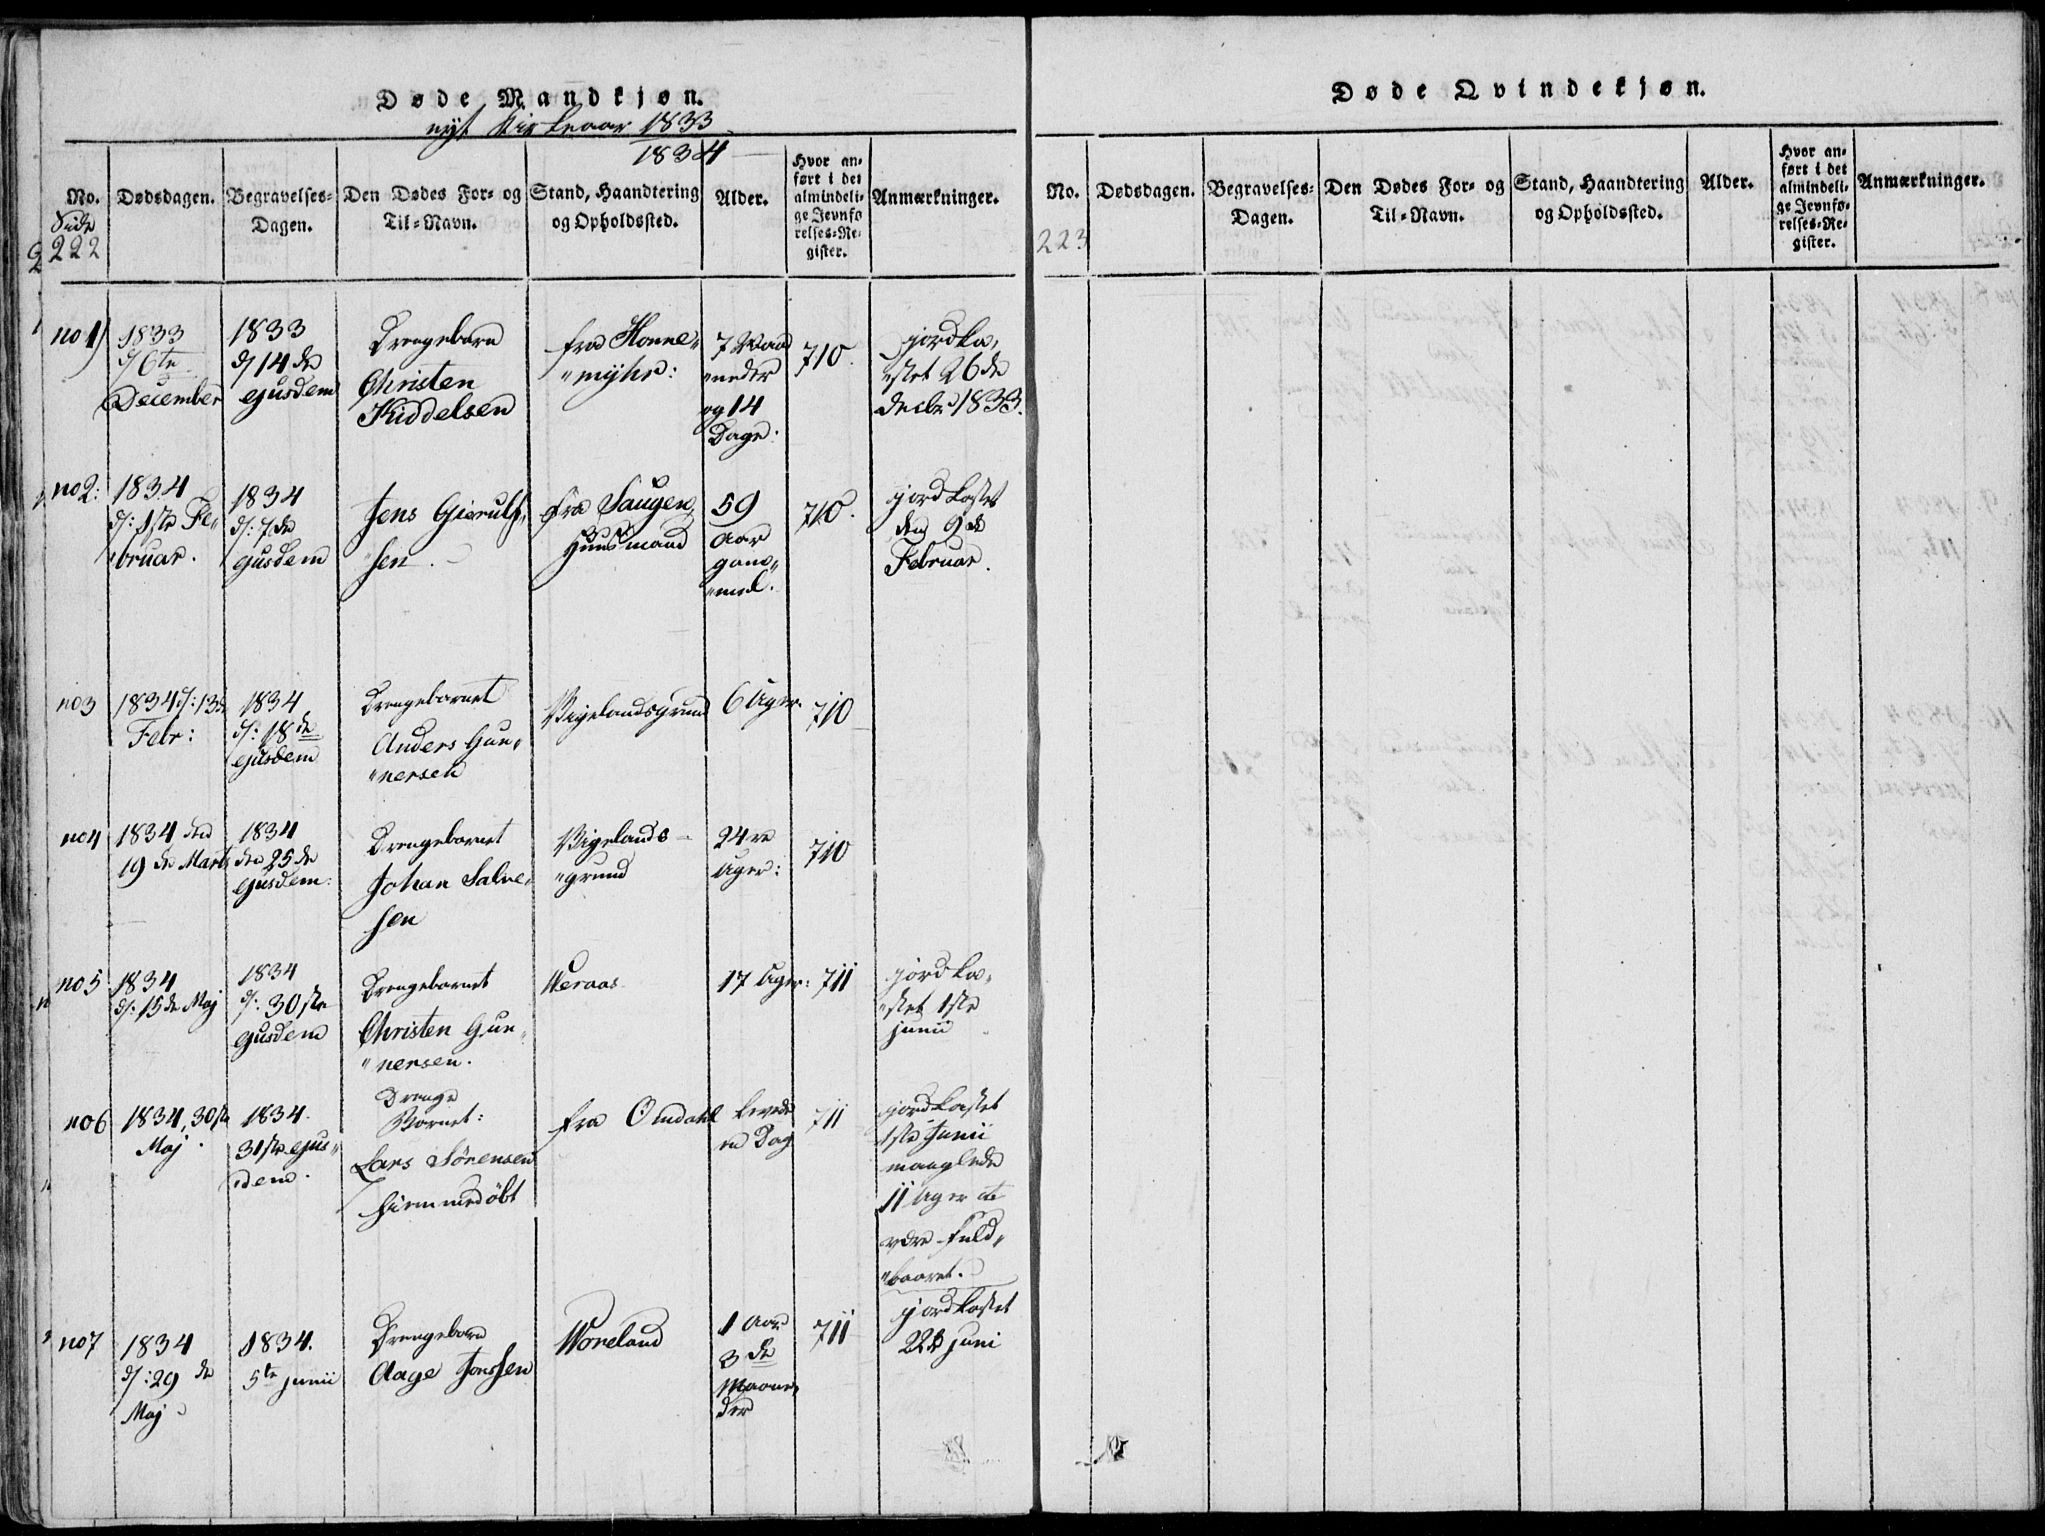 Døde Mandkjøn.
nyt Kirkeaar 1833
1834
No.
Dødsdagen.
Begravelses-
Dagen.
Den Dødes For- og
Til-Navn.
Stand, Haandtering
og Opholdssted.
Alder.
Hvor an-
ført i det
almindeli-
ge Jevnfø
relses-Re-
gister.
Anmærkninger.
Side
222
no 1)
1833
d/ 6te
December
1833
d/ 14 de
ejusdem
Drengebarn
Christen
Kiddelsen
fra Honne„
„myhr:
7 Maa
„neder
og 14
Dage:
710.
jordka„
„stet 26 de
decbr 1833.
no 2:
1834
d/: 1ste Fe„
„bruar.
1834
d/: 7 de
ejusdem
Jens Gierulf„
„sen.
fra Saugen,
Huusmand
59
Aar
gam„
„mel.
710.
jordkastet
den 9 de
Februar.
no 3
1834 d/: 13de
Febr:
1834
d/: 18 de
ejusdem
Drengebarnet
Anders Gun„
„nersen
Vigelandsgrund
6 Uger.
710
no 4
1834 den
19 de Marts
1834
den 25 de
ejusdem:
Drengebarnet
Johan Salve„
sen
Vigelands-
„grund
24 re
Uger:
710
no 5
1834
d/: 15 de Maj
1834
d/: 30 ste
ejusdem
Drengebarnet
Christen Gun„
„nersen.
Weraas
17 Uger:
711
jordka„
„stet 1ste
junii
no 6
1834, 30 ste
Maj.
1834.
31 ste ejus„
„dem.
Drenge
Barnet:
Lars Sørensen
hiemmedøbt
fra Omdahl
levede
en Dag
711
jordkastet
1ste Junii
manglede
11 Uger at
være fuld„
„baaret.
no 7
1834
d/: 29 de
Maj
1834.
5te junii
Drengebarn
Aage Jonssen
Woreland
1 Aar
3 de
Maane„
der
711
jordkastet
22 juni
Døde Qvindekjøn.
No.
Dødsdagen.
Begravelses-
Dagen.
Den Dødes For- og
Til-Navn.
Stand, Haandtering
og Opholdssted.
Alder.
Hvor an-
ført i det
almindeli-
ge Jevnfø-
relses-Re-
gister.
Anmærkninger.
223